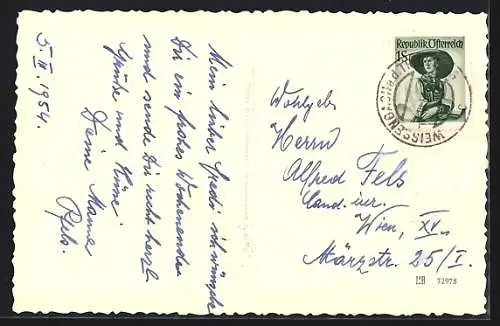 5. II. 1954.
Mein lieber Fredi ich wünsche
Dir ein frohes Wochenende
und sende Dir recht herzl.
Grüße und Küsse
Deine Mama
Republik Österreich
1S
WEISSENBACH
Wohlgeb.
Herrn
Alfred Fels
Cand. iur.
Wien, XV.
Märzstr. 25/I.
72975